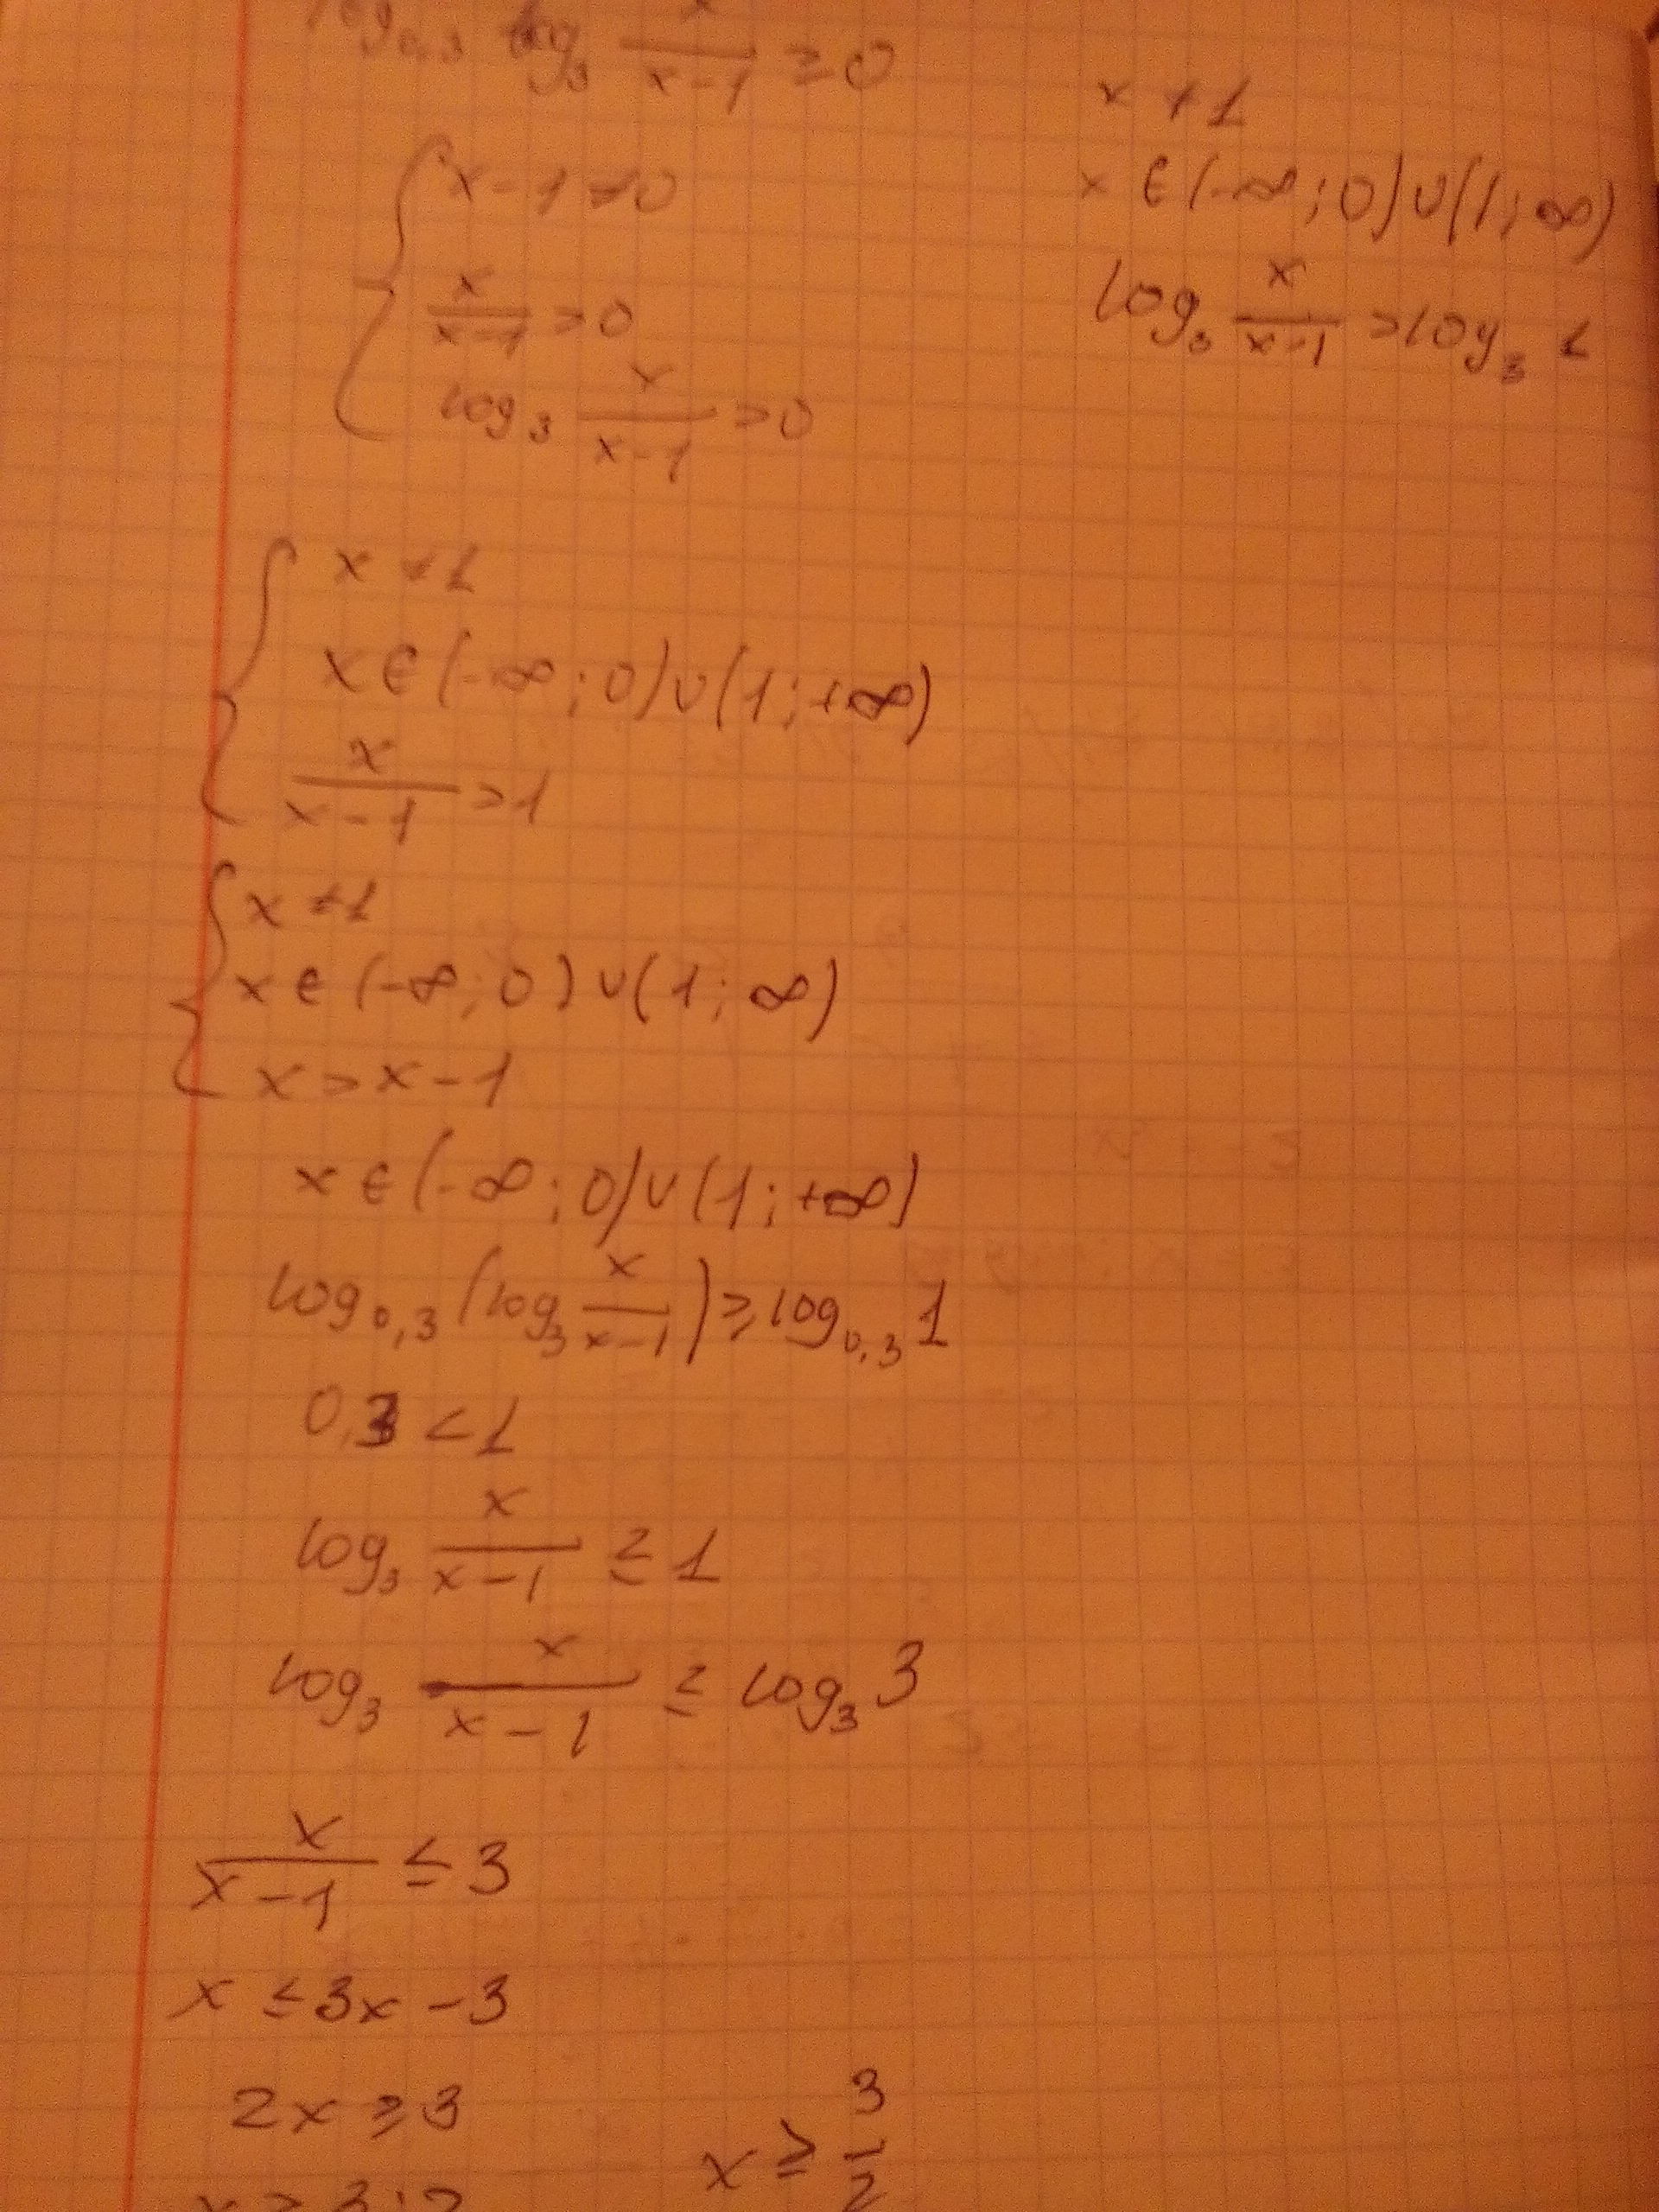 log₀,₃ log₃ x/(x-1) ≥ 0
x ≠ 1
x ∈ (-∞; 0) ∪ (1; ∞)
log₃ x/(x-1) > log₃ 1
{ x-1 ≠ 0
x/(x-1) > 0
log₃ x/(x-1) > 0
{ x ≠ 1
x ∈ (-∞; 0) ∪ (1; +∞)
x/(x-1) > 1
{ x ≠ 1
x ∈ (-∞; 0) ∪ (1; ∞)
x > x-1
x ∈ (-∞; 0) ∪ (1; +∞)
log₀,₃ (log₃ x/(x-1)) ≥ log₀,₃ 1
0,3 < 1
log₃ x/(x-1) ≤ 1
log₃ x/(x-1) ≤ log₃ 3
x/(x-1) ≤ 3
x ≤ 3x - 3
2x ≥ 3
x ≥ 3:2
x ≥ 3/2